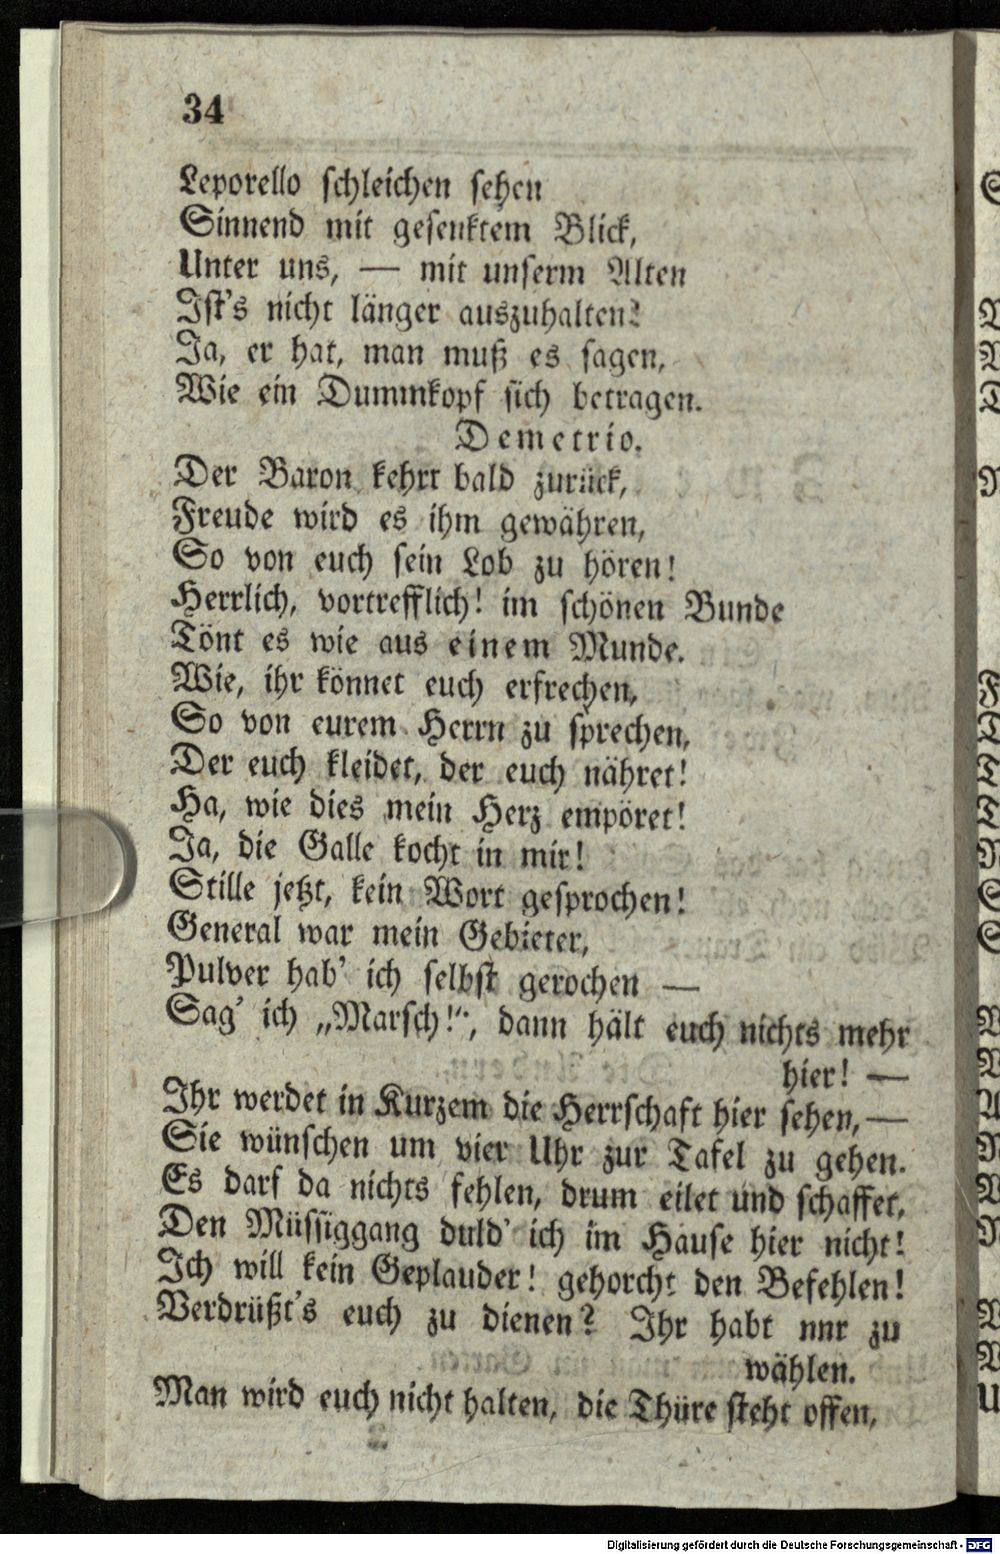 34
Leporello schleichen sehen
Sinnend mit gesenktem Blick,
Unter uns, — mit unserm Alten
Ist's nicht länger auszuhalten!
Ja, er hat, man muß es sagen,
Wie ein Dummkopf sich betragen.
Demetrio.
Der Baron kehrt bald zurück,
Freude wird es ihm gewähren,
So von euch sein Lob zu hören!
Herrlich, vortrefflich! im schönen Bunde
Tönt es wie aus einem Munde.
Wie, ihr könnet euch erfrechen,
So von eurem Herrn zu sprechen,
Der euch kleidet, der euch nähret!
Ha, wie dies mein Herz empöret!
Ja, die Galle kocht in mir!
Stille jetzt, kein Wort gesprochen!
General war mein Gebieter,
Pulver hab' ich selbst gerochen —
Sag' ich „Marsch!“, dann hält euch nichts mehr
hier! —
Ihr werdet in Kurzem die Herrschaft hier sehen, —
Sie wünschen um vier Uhr zur Tafel zu gehen.
Es darf da nichts fehlen, drum eilet und schaffet,
Den Müssiggang duld' ich im Hause hier nicht!
Ich will kein Geplauder! gehorcht den Befehlen!
Verdrüßt's euch zu dienen? Ihr habt nnr zu
wählen.
Man wird euch nicht halten, die Thüre steht offen,
Digitalisierung gefördert durch die Deutsche Forschungsgemeinschaft - DFG